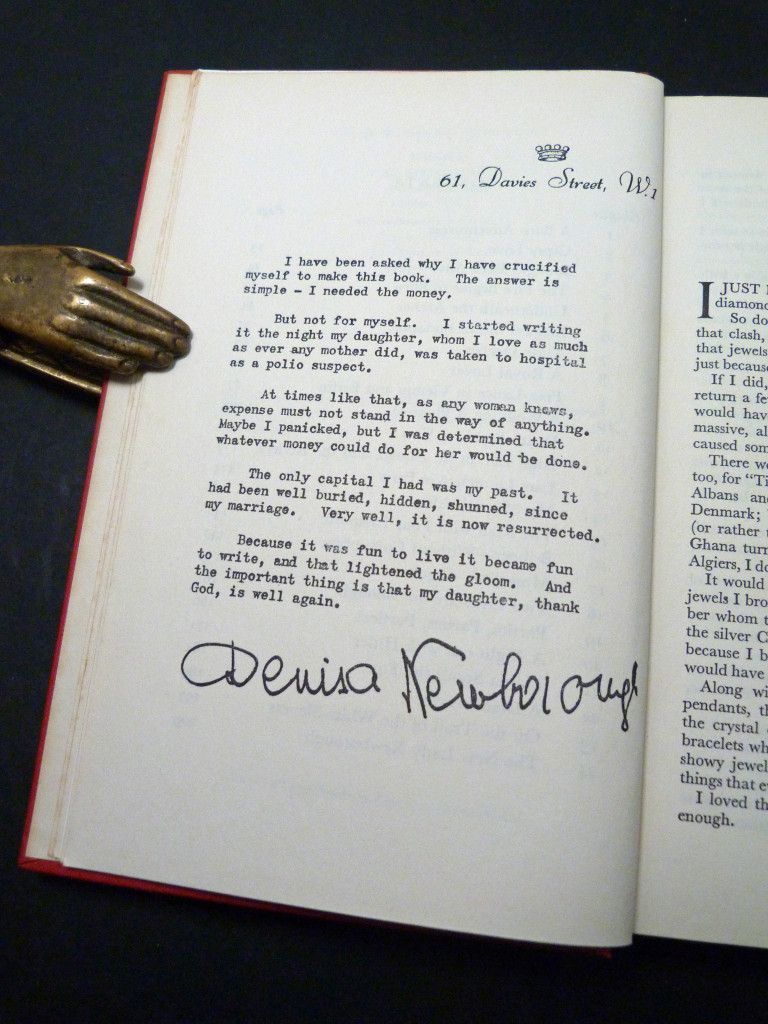 61, Davies Street, W.1
I have been asked why I have crucified
myself to make this book. The answer is
simple - I needed the money.
But not for myself. I started writing
it the night my daughter, whom I love as much
as ever any mother did, was taken to hospital
as a polio suspect.
At times like that, as any woman knows,
expense must not stand in the way of anything.
Maybe I panicked, but I was determined that
whatever money could do for her would be done.
The only capital I had was my past. It
had been well buried, hidden, shunned, since
my marriage. Very well, it is now resurrected.
Because it was fun to live it became fun
to write, and that lightened the gloom. And
the important thing is that my daughter, thank
God, is well again.
Denisa Newborough
I JUST
diamond
So do
that clash,
that jewels
just because
If I did,
return a fe
would hav
massive, al
caused som
There we
too, for "Ti
Albans and
Denmark;
(or rather
Ghana turn
Algiers, I do
It would
jewels I bro
ber whom t
the silver C
because I b
would have
Along wi
pendants, th
the crystal
bracelets wh
showy jewel
things that e
I loved th
enough.